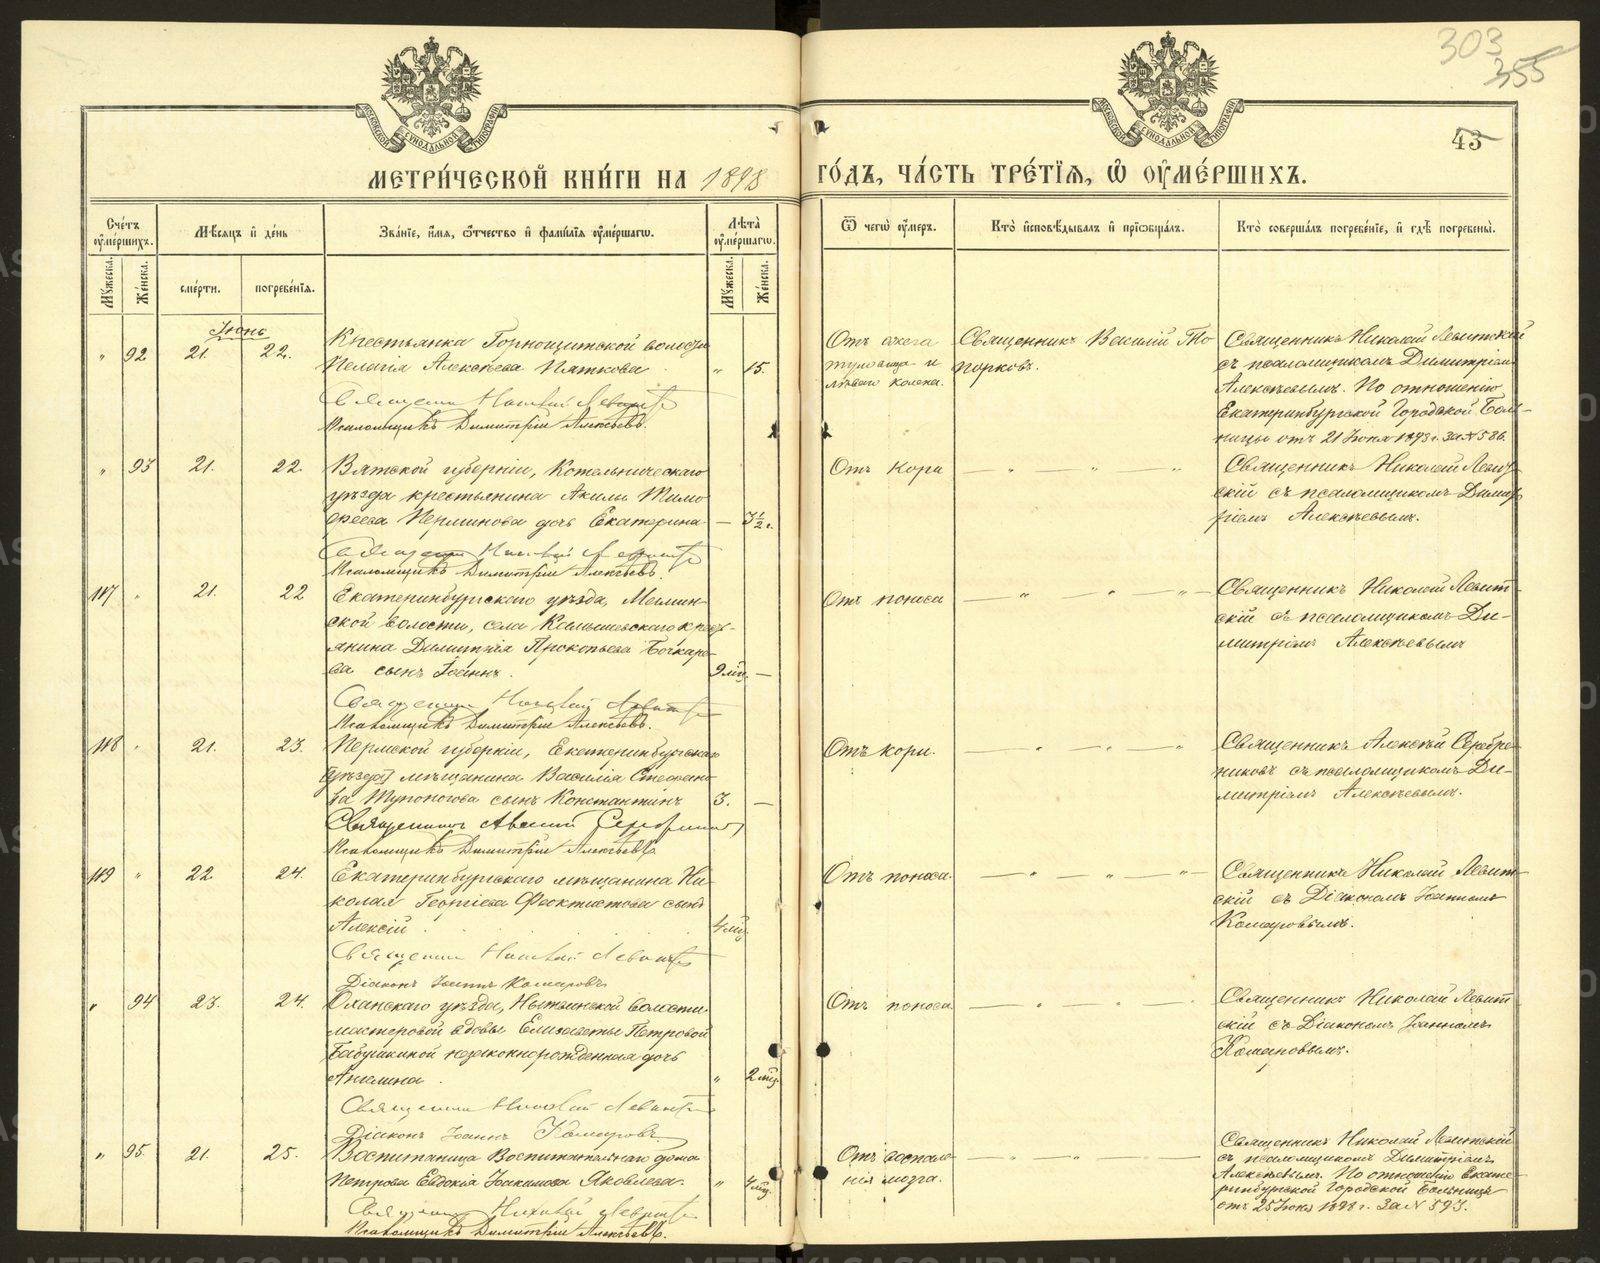 303
355
43
МЕТРИ́ЧЕСКОЙ КНИ́ГИ НА 1898 ГО́ДЪ, ЧА́СТЬ ТРЕ́ТЇѦ, Ѡ ОУМЕ́РШИХЪ.
Сче́тъ оумершихъ.
Мужеска.
Же́нска.
Мѣсяцъ и де́нь
сме́рти.
погребе́нїѧ.
Зва́нїе, и́мѧ, ѻ́тчество и фами́лїѧ оуме́ршагѡ.
Лѣта̀ оуме́ршагѡ.
Мужеска.
Же́нска.
Ѿ чегѡ̀ оу́меръ.
Кто̀ и҆сповѣ́дывалъ и҆ прїѡбща́лъ.
Кто̀ соверша́лъ погребе́нїе, и҆ гдѣ̀ погребены̀.
Іюнь
" 92 21. 22.
Крестьянка Горнощитской волости
Пелагія Алексѣева Пяткова " 15.
Священникъ Николай Левитскій
Псаломщикъ Димитрій Алексѣевъ.
Отъ ожега
туловища и
лѣваго колена.
Священникъ Василій То
порковъ.
Священникъ Николай Левитскій
съ псаломщикомъ Димитріемъ
Алексѣевымъ. По отношенію
Екатеринбургской Городской Боль-
ницы отъ 21 Іюня 1898 г. за № 586.
" 93 21. 22.
Вятской губерніи, Котельническаго
уѣзда крестьянина Акилы Тимо
феева Перминова дочь Екатерина — 3½ г.
Священникъ Николай Левитскій
Псаломщикъ Димитрій Алексѣевъ.
Отъ кори — " — " — "
Священникъ Николай Левит
скій съ псаломщикомъ Димит
ріемъ Алексѣевымъ.
117 " 21. 22
Екатеринбургскаго уѣзда, Мамин-
ской волости, села Камышевскаго крест-
янина Димитрія Прокопьева Бочкаре-
ва сынъ Іоаннъ. 9 мѣц. —
Священникъ Николай Левитскій
Псаломщикъ Димитрій Алексѣевъ.
Отъ поноса — " — " — "
Священникъ Николай Левит
скій съ псаломщикомъ Ди-
митріемъ Алексѣевымъ
118 " 21. 23.
Пермской губерніи, Екатеринбургскаго
(уѣзда) мѣщанина Василія Степано-
ва Тупоногова сынъ Константинъ 3. —
Священникъ Алексій Серебренниковъ
Псаломщикъ Димитрій Алексѣевъ
Отъ кори. — " — " — "
Священникъ Алексѣй Серебре-
никовъ съ псаломщикомъ Ди-
митріемъ Алексѣевымъ.
119 " 22 24.
Екатеринбургскаго мѣщанина Ни-
колая Георгіева Феоктистова сынъ
Алексій. 4 мѣц.
Священникъ Николай Левитскій
Діаконъ Іоаннъ Комаровъ
Отъ поноса. — " — " — "
Священникъ Николай Левит-
скій съ Діакономъ Іоанномъ
Комаровымъ.
" 94 23. 24.
Оханскаго уѣзда, Нытвинской волости
мастеровой вдовы Елизаветы Петровой
Бабушкиной незаконнорожденная дочь
Ангелина. " 2 мѣц.
Священникъ Николай Левитскій
Діаконъ Іоаннъ Комаровъ.
Отъ поноса — " — "
Священникъ Николай Левит
скій съ Діакономъ Іоанномъ
Комаровымъ.
" 95. 21. 25.
Воспитаница Воспитательнаго дома
Петрова Евдокія Іоакимова Яковлева. " 4 мѣц.
Священникъ Николай Левитскій
Псаломщикъ Димитрій Алексѣевъ.
Отъ воспале-
нія мозга. — " — " —
Священникъ Николай Левитской
съ псаломщикомъ Димитріемъ
Алексѣевымъ. По отношенію Екате-
ринбургской Городской Больницы
отъ 25 Іюня 1898 г. за № 593.